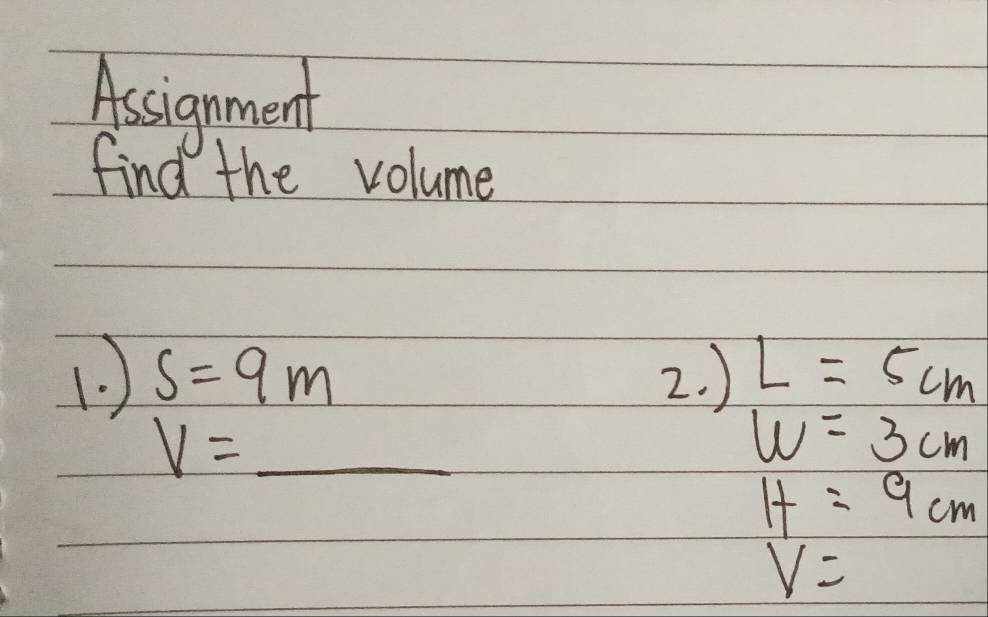 Assignment
find the volume
1.) S = 9 m
V = ______
2.) L = 5 cm
W = 3 cm
H = 9 cm
V =